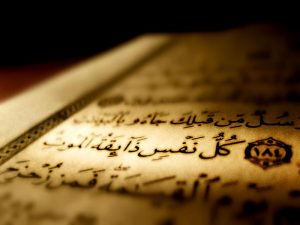 رُسُلٌ مِّن قَبْلِكَ جَآءُو بِٱلْبَيِّنَٰتِ
١٨٤ كُلُّ نَفْسٍ ذَآئِقَةُ ٱلْمَوْتِ
ٱلْقِيَٰمَةِ فَمَن زُحْزِحَ